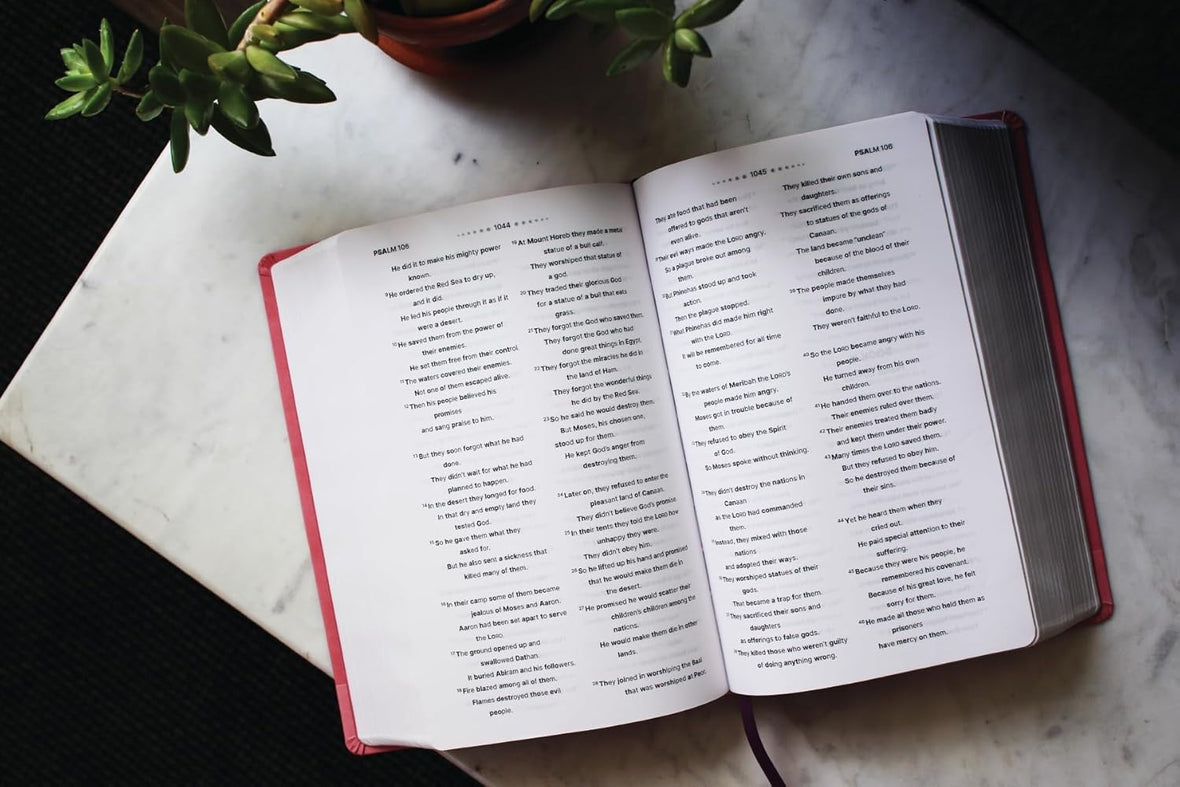 PSALM 106
1044
He did it to make his mighty power
known.
9He ordered the Red Sea to dry up,
and it did.
He led his people through it as if it
were a desert.
10He saved them from the power of
their enemies.
He set them free from their control.
11The waters covered their enemies.
Not one of them escaped alive.
12Then his people believed his
promises
and sang praise to him.
13But they soon forgot what he had
done.
They didn't wait for what he had
planned to happen.
14In the desert they longed for food.
In that dry and empty land they
tested God.
15So he gave them what they
asked for.
But he also sent a sickness that
killed many of them.
16In their camp some of them became
jealous of Moses and Aaron.
Aaron had been set apart to serve
the LORD.
17The ground opened up and
swallowed Dathan.
It buried Abiram and his followers.
18Fire blazed among all of them.
Flames destroyed those evil
people.
19At Mount Horeb they made a metal
statue of a bull calf.
They worshiped that statue of
a god.
20They traded their glorious God
for a statue of a bull that eats
grass.
21They forgot the God who saved them.
They forgot the God who had
done great things in Egypt.
22They forgot the miracles he did in
the land of Ham.
They forgot the wonderful things
he did by the Red Sea.
23So he said he would destroy them.
But Moses, his chosen one,
stood up for them.
He kept God's anger from
destroying them.
24Later on, they refused to enter the
pleasant land of Canaan.
They didn't believe God's promise.
25In their tents they told the LORD how
unhappy they were.
They didn't obey him.
26So he lifted up his hand and promised
that he would make them die in
the desert.
27He promised he would scatter their
children's children among the
nations.
He would make them die in other
lands.
28They joined in worshiping the Baal
that was worshiped at Peor.
1045
PSALM 106
They ate food that had been
offered to gods that aren't
even alive.
Their evil ways made the LORD angry.
So a plague broke out among
them.
But Phinehas stood up and took
action.
Then the plague stopped.
What Phinehas did made him right
with the LORD.
It will be remembered for all time
to come.
By the waters of Meribah the LORD's
people made him angry.
Moses got in trouble because of
them.
They refused to obey the Spirit
of God.
So Moses spoke without thinking.
They didn't destroy the nations in
Canaan
as the LORD had commanded
them.
Instead, they mixed with those
nations
and adopted their ways.
They worshiped statues of their
gods.
That became a trap for them.
They sacrificed their sons and
daughters
as offerings to false gods.
They killed those who weren't guilty
of doing anything wrong.
They killed their own sons and
daughters.
They sacrificed them as offerings
to statues of the gods of
Canaan.
The land became "unclean"
because of the blood of their
children.
39The people made themselves
impure by what they had
done.
They weren't faithful to the LORD.
40So the LORD became angry with his
people.
He turned away from his own
children.
41He handed them over to the nations.
Their enemies ruled over them.
42Their enemies treated them badly
and kept them under their power.
43Many times the LORD saved them.
But they refused to obey him.
So he destroyed them because of
their sins.
44Yet he heard them when they
cried out.
He paid special attention to their
suffering.
45Because they were his people, he
remembered his covenant.
Because of his great love, he felt
sorry for them.
46He made all those who held them as
prisoners
have mercy on them.